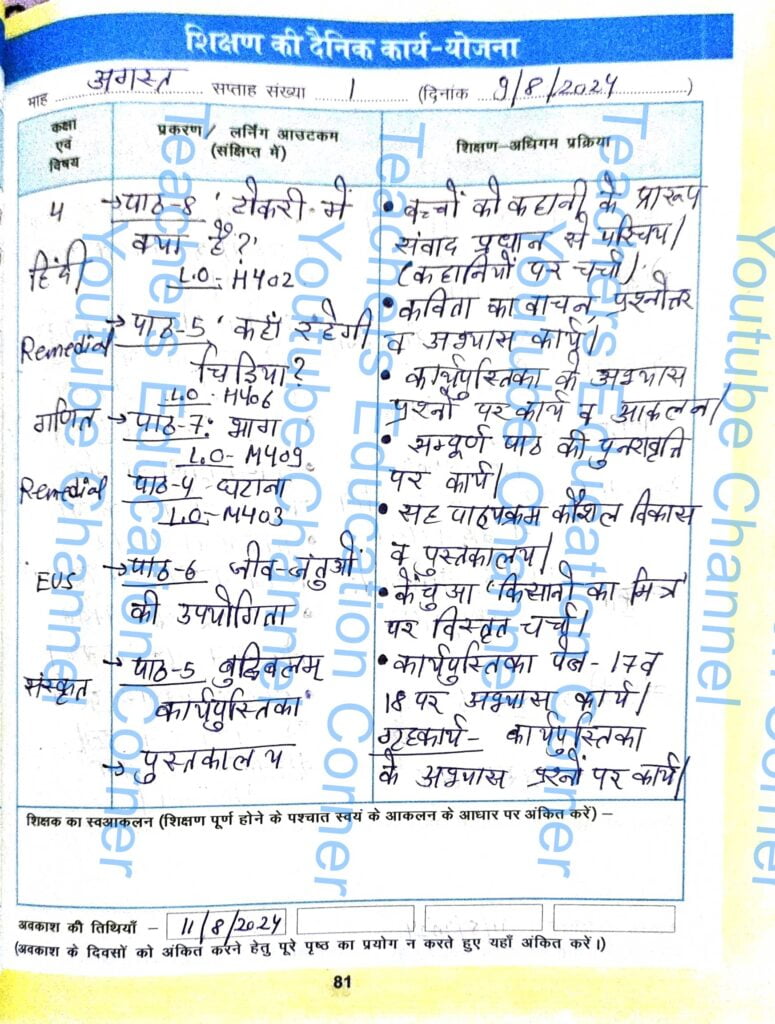 शिक्षण की दैनिक कार्य-योजना
माह अगस्त सप्ताह संख्या 1 (दिनांक 9/8/2024)
कक्षा एवं विषय
प्रकरण / लर्निंग आउटकम (संक्षिप्त में)
शिक्षण-अधिगम प्रक्रिया
4
हिंदी
→ पाठ-8 'टोकरी में
क्या है?'
L.O- H402
Remedial
→ पाठ-5 'कहाँ रहेगी
चिड़िया?
L.O- H406
गणित
→ पाठ-7: भाग
L.O- M409
Remedial
पाठ-4 घटाना
L.O- M403
EVS
→ पाठ-6 जीव-जंतुओं
की उपयोगिता
संस्कृत
→ पाठ-5 बुद्धिबलम्
कार्यपुस्तिका
→ पुस्तकालय
• बच्चों को कहानी के प्रारूप
संवाद प्रधान से परिचय।
(कहानियों पर चर्चा)
• कविता का वाचन, प्रश्नोत्तर
व अभ्यास कार्य।
• कार्यपुस्तिका के अभ्यास
प्रश्नों पर कार्य व आकलन।
• सम्पूर्ण पाठ की पुनरावृत्ति
पर कार्य।
• सह पाठ्यक्रम कौशल विकास
व पुस्तकालय।
• केंचुआ 'किसानों का मित्र'
पर विस्तृत चर्चा।
• कार्यपुस्तिका पेज - 17 व
18 पर अभ्यास कार्य।
गृहकार्य - कार्यपुस्तिका
के अभ्यास प्रश्नों पर कार्य।
शिक्षक का स्वआकलन (शिक्षण पूर्ण होने के पश्चात स्वयं के आकलन के आधार पर अंकित करें) –
अवकाश की तिथियाँ – 11/8/2024
(अवकाश के दिवसों को अंकित करने हेतु पूरे पृष्ठ का प्रयोग न करते हुए यहाँ अंकित करें।)
81
Teachers Education Corner
Youtube Channel
Teachers Education Corner
Youtube Channel
Teachers Education Corner
Youtube Channel